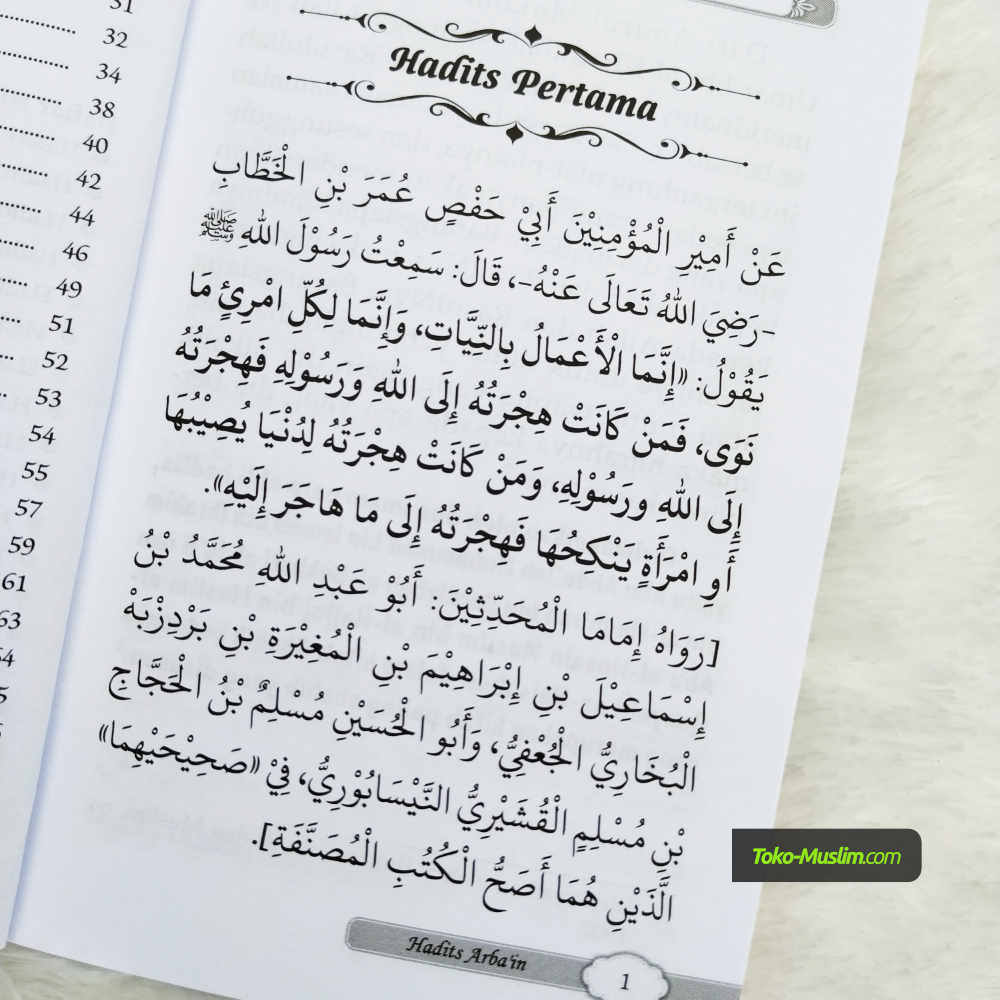 31
32
34
38
40
42
44
46
49
51
52
53
54
55
57
59
61
63
Hadits Pertama
عَنْ أَمِيْرِ الْمُؤْمِنِيْنَ أَبِيْ حَفْصٍ عُمَرَ بْنِ الْخَطَّابِ
-رَضِيَ اللهُ تَعَالَى عَنْهُ-، قَالَ: سَمِعْتُ رَسُوْلَ اللهِ ﷺ
يَقُوْلُ: «إِنَّمَا الْأَعْمَالُ بِالنِّيَّاتِ، وَإِنَّمَا لِكُلِّ امْرِئٍ مَا
نَوَى، فَمَنْ كَانَتْ هِجْرَتُهُ إِلَى اللهِ وَرَسُوْلِهِ فَهِجْرَتُهُ
إِلَى اللهِ ورَسُوْلِهِ، وَمَنْ كَانَتْ هِجْرَتُهُ لِدُنْيَا يُصِيْبُهَا
أَوِ امْرَأَةٍ يَنْكِحُهَا فَهِجْرَتُهُ إِلَى مَا هَاجَرَ إِلَيْهِ».
[رَوَاهُ إِمَامَا الْمُحَدِّثِيْنَ: أَبُوْ عَبْدِ اللهِ مُحَمَّدُ بْنُ
إِسْمَاعِيْلَ بْنِ إِبْرَاهِيْمَ بْنِ الْمُغِيْرَةِ بْنِ بَرْدِزْبَهْ
الْبُخَارِيُّ الْجُعْفِيُّ، وَأَبُو الْحُسَيْنِ مُسْلِمٌ بْنُ الْحَجَّاجِ
بْنِ مُسْلِمٍ الْقُشَيْرِيُّ النَّيْسَابُوْرِيُّ، فِيْ «صَحِيْحَيْهِمَا»
الَّذَيْنِ هُمَا أَصَحُّ الْكُتُبِ الْمُصَنَّفَةِ].
Hadits Arba'in
1
Toko-Muslim.com